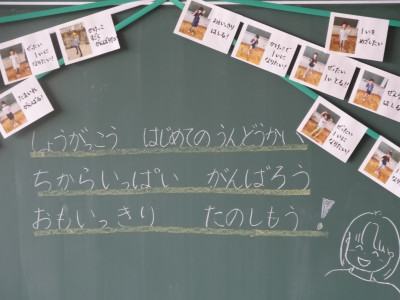 おもいっきり
はしる!
1いを
めざしたい
ぜったい
1いに
なりたい!
かけっこで
1いに
なりたい!
ぜったい
1いとる!!
ぜったい
1いに
なりたい!
しょうがっこう はじめての うんどうかい
ちからいっぱい がんばろう
おもいっきり たのしもう!